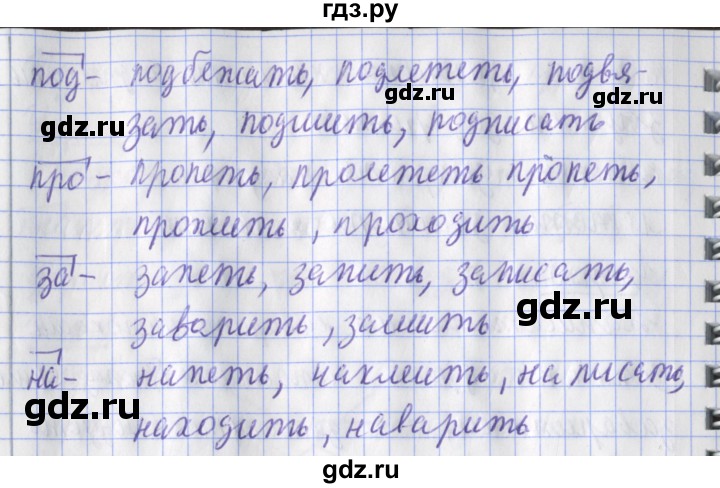 гдз.ру
под- подбежать, подлететь, подвя-
gdz.ru
gdz.ru
gdz.ru
зать, подшить, подписать
про- пропеть, пролететь пропеть,
прожить, проходить
за- запеть, запить, записать,
gdz.ru
заварить, зашить
на- напеть, наклеить, написать,
gdz.ru
находить, наварить
gdz.ru
gdz.ru